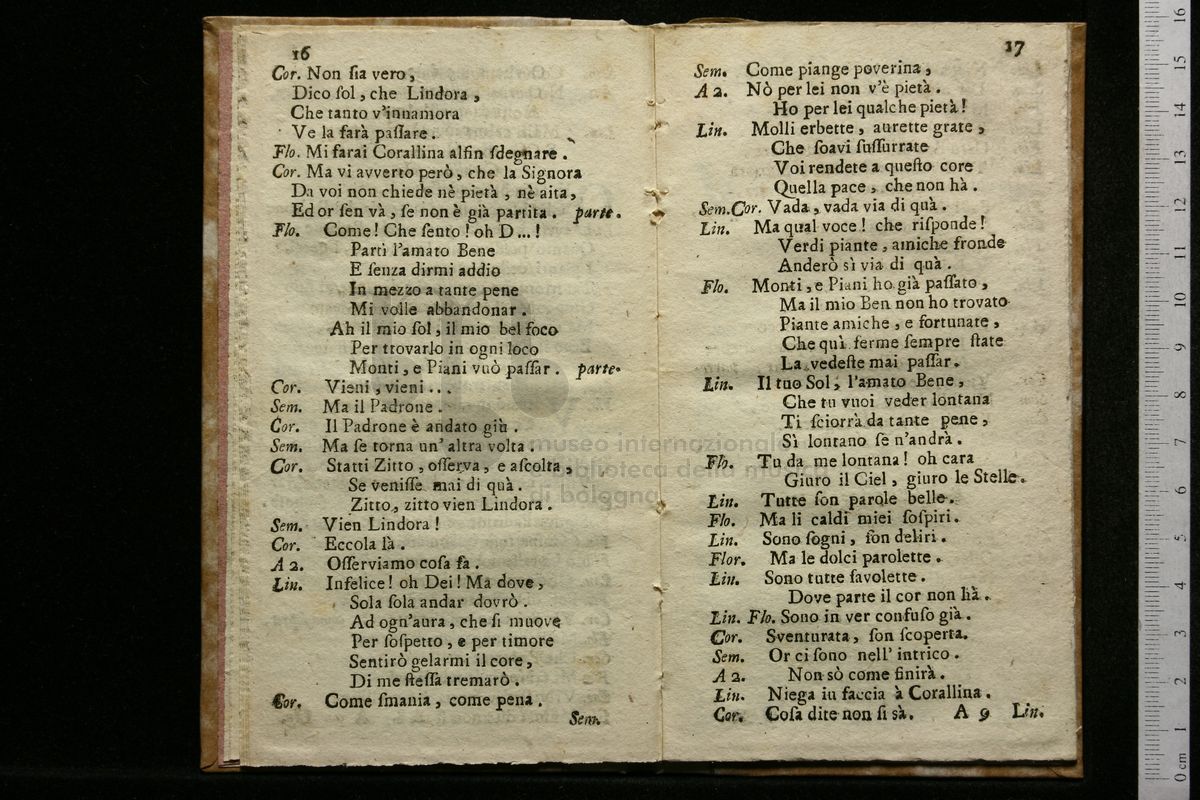 16
Cor. Non ſia vero,
Dico ſol, che Lindora,
Che tanto v'innamora
Ve la farà paſſare.
Flo. Mi farai Corallina alfin ſdegnare.
Cor. Ma vi avverto però, che la Signora
Da voi non chiede nè pietà, nè aita,
Ed or ſen và, ſe non è già partita. parte.
Flo. Come! Che ſento! oh D...!
Partì l'amato Bene
E ſenza dirmi addio
In mezzo a tante pene
Mi volle abbandonar.
Ah il mio ſol, il mio bel foco
Per trovarlo in ogni loco
Monti, e Piani vuò paſſar. parte.
Cor. Vieni, vieni...
Sem. Ma il Padrone.
Cor. Il Padrone è andato giù.
Sem. Ma ſe torna un' altra volta.
Cor. Statti Zitto, oſſerva, e aſcolta,
Se veniſſe mai di quà.
Zitto, zitto vien Lindora.
Sem. Vien Lindora!
Cor. Eccola là.
A 2. Oſſerviamo coſa fa.
Lin. Infelice! oh Dei! Ma dove,
Sola ſola andar dovrò.
Ad ogn'aura, che ſi muove
Per ſoſpetto, e per timore
Sentirò gelarmi il core,
Di me ſteſſa tremarò.
Cor. Come ſmania, come pena.
Sem.
17
Sem. Come piange poverina,
A 2. Nò per lei non v'è pietà.
Ho per lei qualche pietà!
Lin. Molli erbette, aurette grate,
Che ſoavi ſuſſurrate
Voi rendete a queſto core
Quella pace, che non hà.
Sem. Cor. Vada, vada via di quà.
Lin. Ma qual voce! che riſponde!
Verdi piante, amiche fronde
Anderò sì via di quà.
Flo. Monti, e Piani ho già paſſato,
Ma il mio Ben non ho trovato
Piante amiche, e fortunate,
Che quì ferme ſempre ſtate
La vedeſte mai paſſar.
Lin. Il tuo Sol, l'amato Bene,
Che tu vuoi veder lontana
Ti ſciorrà da tante pene,
Sì lontano ſe n'andrà.
Flo. Tu da me lontana! oh cara
Giuro il Ciel, giuro le Stelle.
Lin. Tutte ſon parole belle.
Flo. Ma li caldi miei ſoſpiri.
Lin. Sono ſogni, ſon deliri.
Flor. Ma le dolci parolette.
Lin. Sono tutte favolette.
Dove parte il cor non hà.
Lin. Flo. Sono in ver confuſo già.
Cor. Sventurata, ſon ſcoperta.
Sem. Or ci ſono nell' intrico.
A 2. Non sò come finirà.
Lin. Niega in faccia à Corallina.
Cor. Coſa dite non ſi sà. A 9 Lin.
museo internazionale
biblioteca della musica
di bologna
0 cm 1 2 3 4 5 6 7 8 9 10 11 12 13 14 15 16